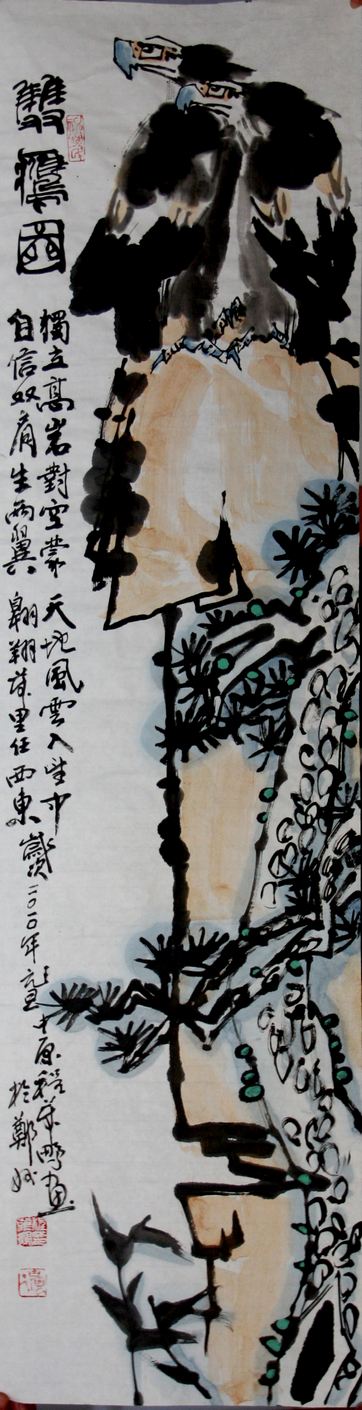 雙鷹圖
獨立高岩對空蒙 天地風雲入望中
自信双肩生兩翼 翱翔萬里任西東 歲次二〇一〇年元旦中原画
於鄭州